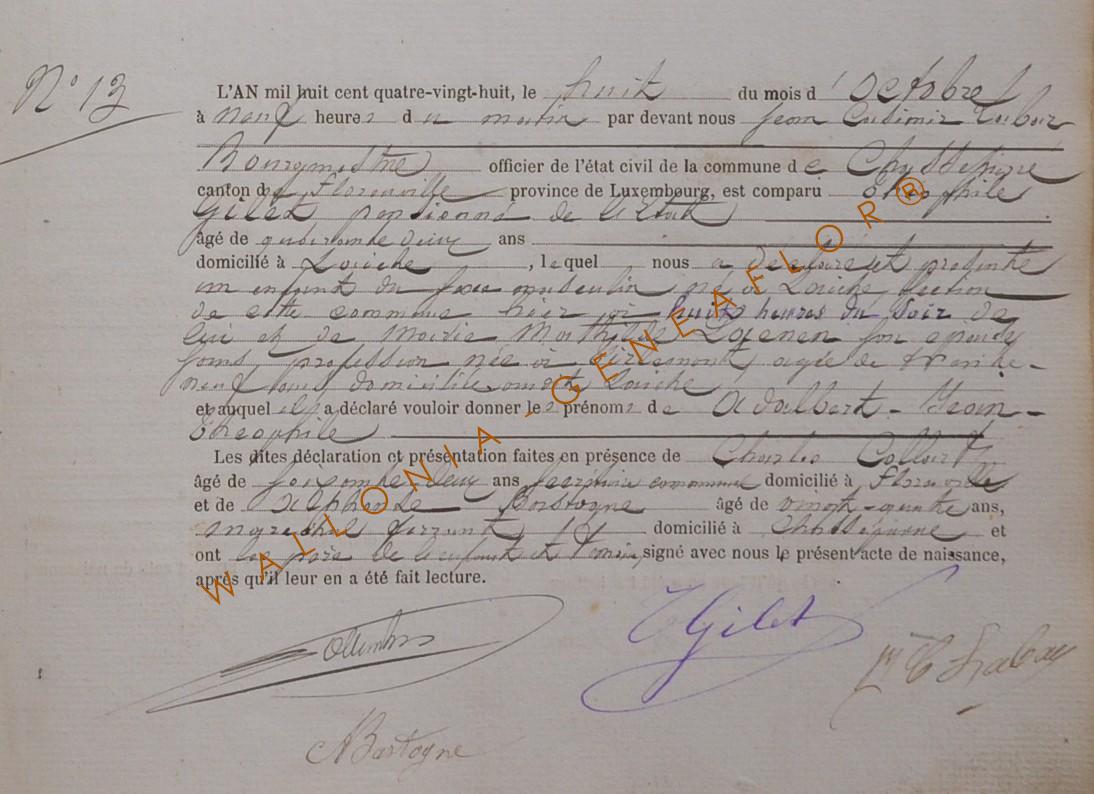 N° 13
L'AN mil huit cent quatre-vingt-huit, le huit du mois d'Octobre
à neuf heures du matin par devant nous Jean Casimir
Bourgmestre officier de l'état civil de la commune de Chassepierre
canton de Florenville province de Luxembourg, est comparu Théophile
Gilet pensionné de l'Etat
âgé de quarante deux ans
domicilié à Laiche, lequel nous a déclaré et présenté
un enfant du sexe masculin né à Laiche section
de cette commune hier à huit heures du soir de
lui et de Marie Mathilde son épouse
sans profession née à agée de trente-
neuf ans domiciliée avec Laiche
et auquel il a déclaré vouloir donner les prénoms de Adalbert-Jean-
Théophile
Les dites déclaration et présentation faites en présence de Charles Collart
âgé de soixante deux ans secrétaire communal domicilié à Florenville
et de Alphonse Bastogne âgé de vingt-quatre ans,
maréchal ferrant domicilié à Chassepierre et
ont les père de l'enfant et témoins, signé avec nous le présent acte de naissance,
après qu'il leur en a été fait lecture.
WALLONIA - GENEAFLOR®
TGilet
ABastogne